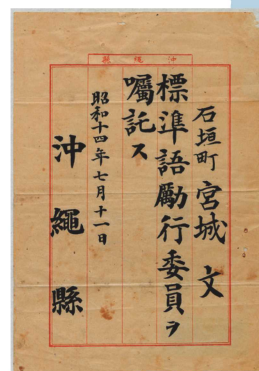 沖縄縣
石垣町 宮城 文
標準語勵行委員ヲ
囑託ス
昭和十四年七月十一日
沖繩縣